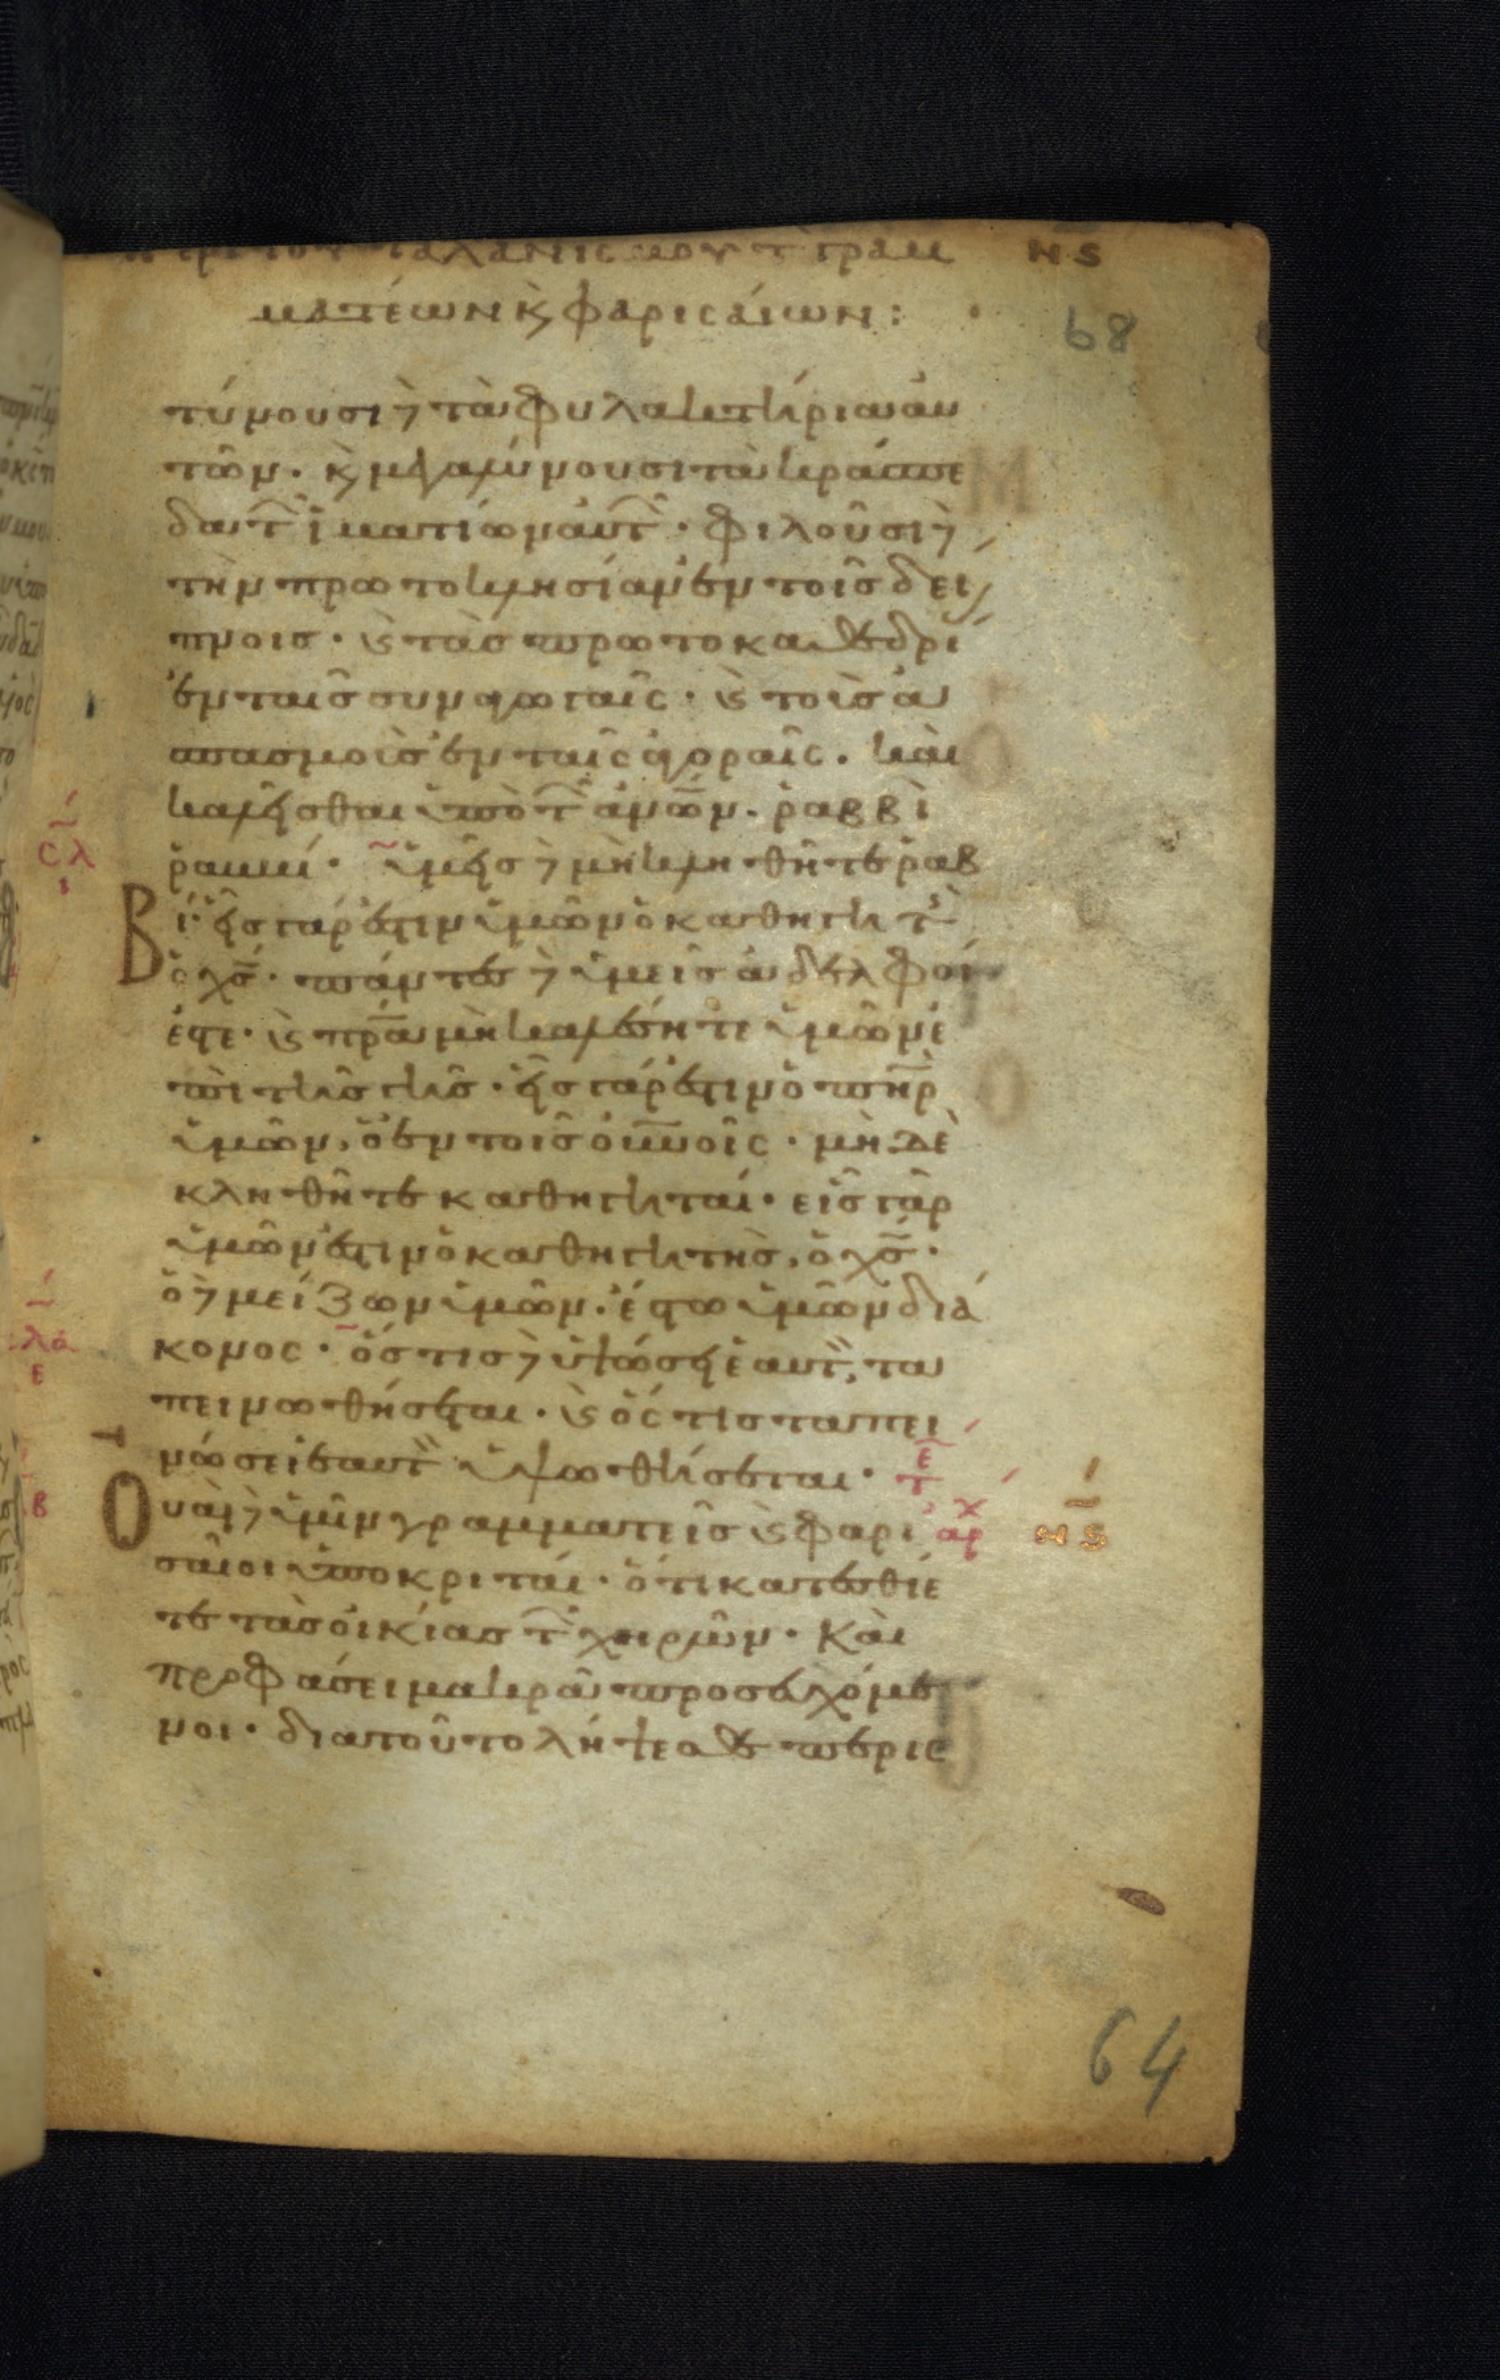 περὶ τοῦ ταλανισμοῦ τ γραμ ΝϚ
ματέων κ φαρισαίων :
68
τύνουσι δὲ τὰ φυλακτήρια αὐ
τῶν · κ μεγαλύνουσι τὰ κράσπε
δα τ ἱματίων αὐτ · φιλοῦσι δὲ
τὴν πρωτοκλησίαν ἐν τοῖς δεί
πνοις · ϗ τὰς πρωτοκαθεδρί
ἐν ταῖς συναγωγαῖς · ϗ τοὺς ἀ
σπασμοὺς ἐν ταῖς ἀγοραῖς · καὶ
καλεῖσθαι ὑπὸ τ ἀνων · ῥαββὶ
ῥαββί · ὑμεῖς δὲ μὴ κληθῆτε ῥαβ
βί· εἷς γάρ ἐστιν ὑμῶν ὁ καθηγητ
ὁ χς · πάντες δὲ ὑμεῖς ἀδελφοί
ἐστε · ϗ πρα μὴ καλέσητε ὑμῶν ἐ
πὶ τῆς γῆς · εἷς γάρ ἐστιν ὁ πηρ
ὑμῶν, ὁ ἐν τοῖς οὐνοῖς · μὴ δὲ
κληθῆτε καθηγηταί · εἷς γὰρ
ὑμῶν ἐστιν ὁ καθηγητής, ὁ χς ·
ὁ δὲ μείζων ὑμῶν · ἔστω ὑμῶν διά
κονος · ὅστις δὲ ὑψώσει ἑαυτ, τα
πεινωθήσεται · ϗ ὅστις ταπει
νώσει ἑαυτ ὑψωθήσεται ·
Οὐαὶ δὲ ὑμῖν γραμματεῖς ϗ φαρι αρχ ΝϚ
σαῖοι ὑποκριταί · ὅτι κατεσθίε
τε τὰς οἰκίας τ χηρῶν · Καὶ
προφάσει μακρᾶ προσευχόμε
νοι · διατοῦτο λήψεσθε περισ
64